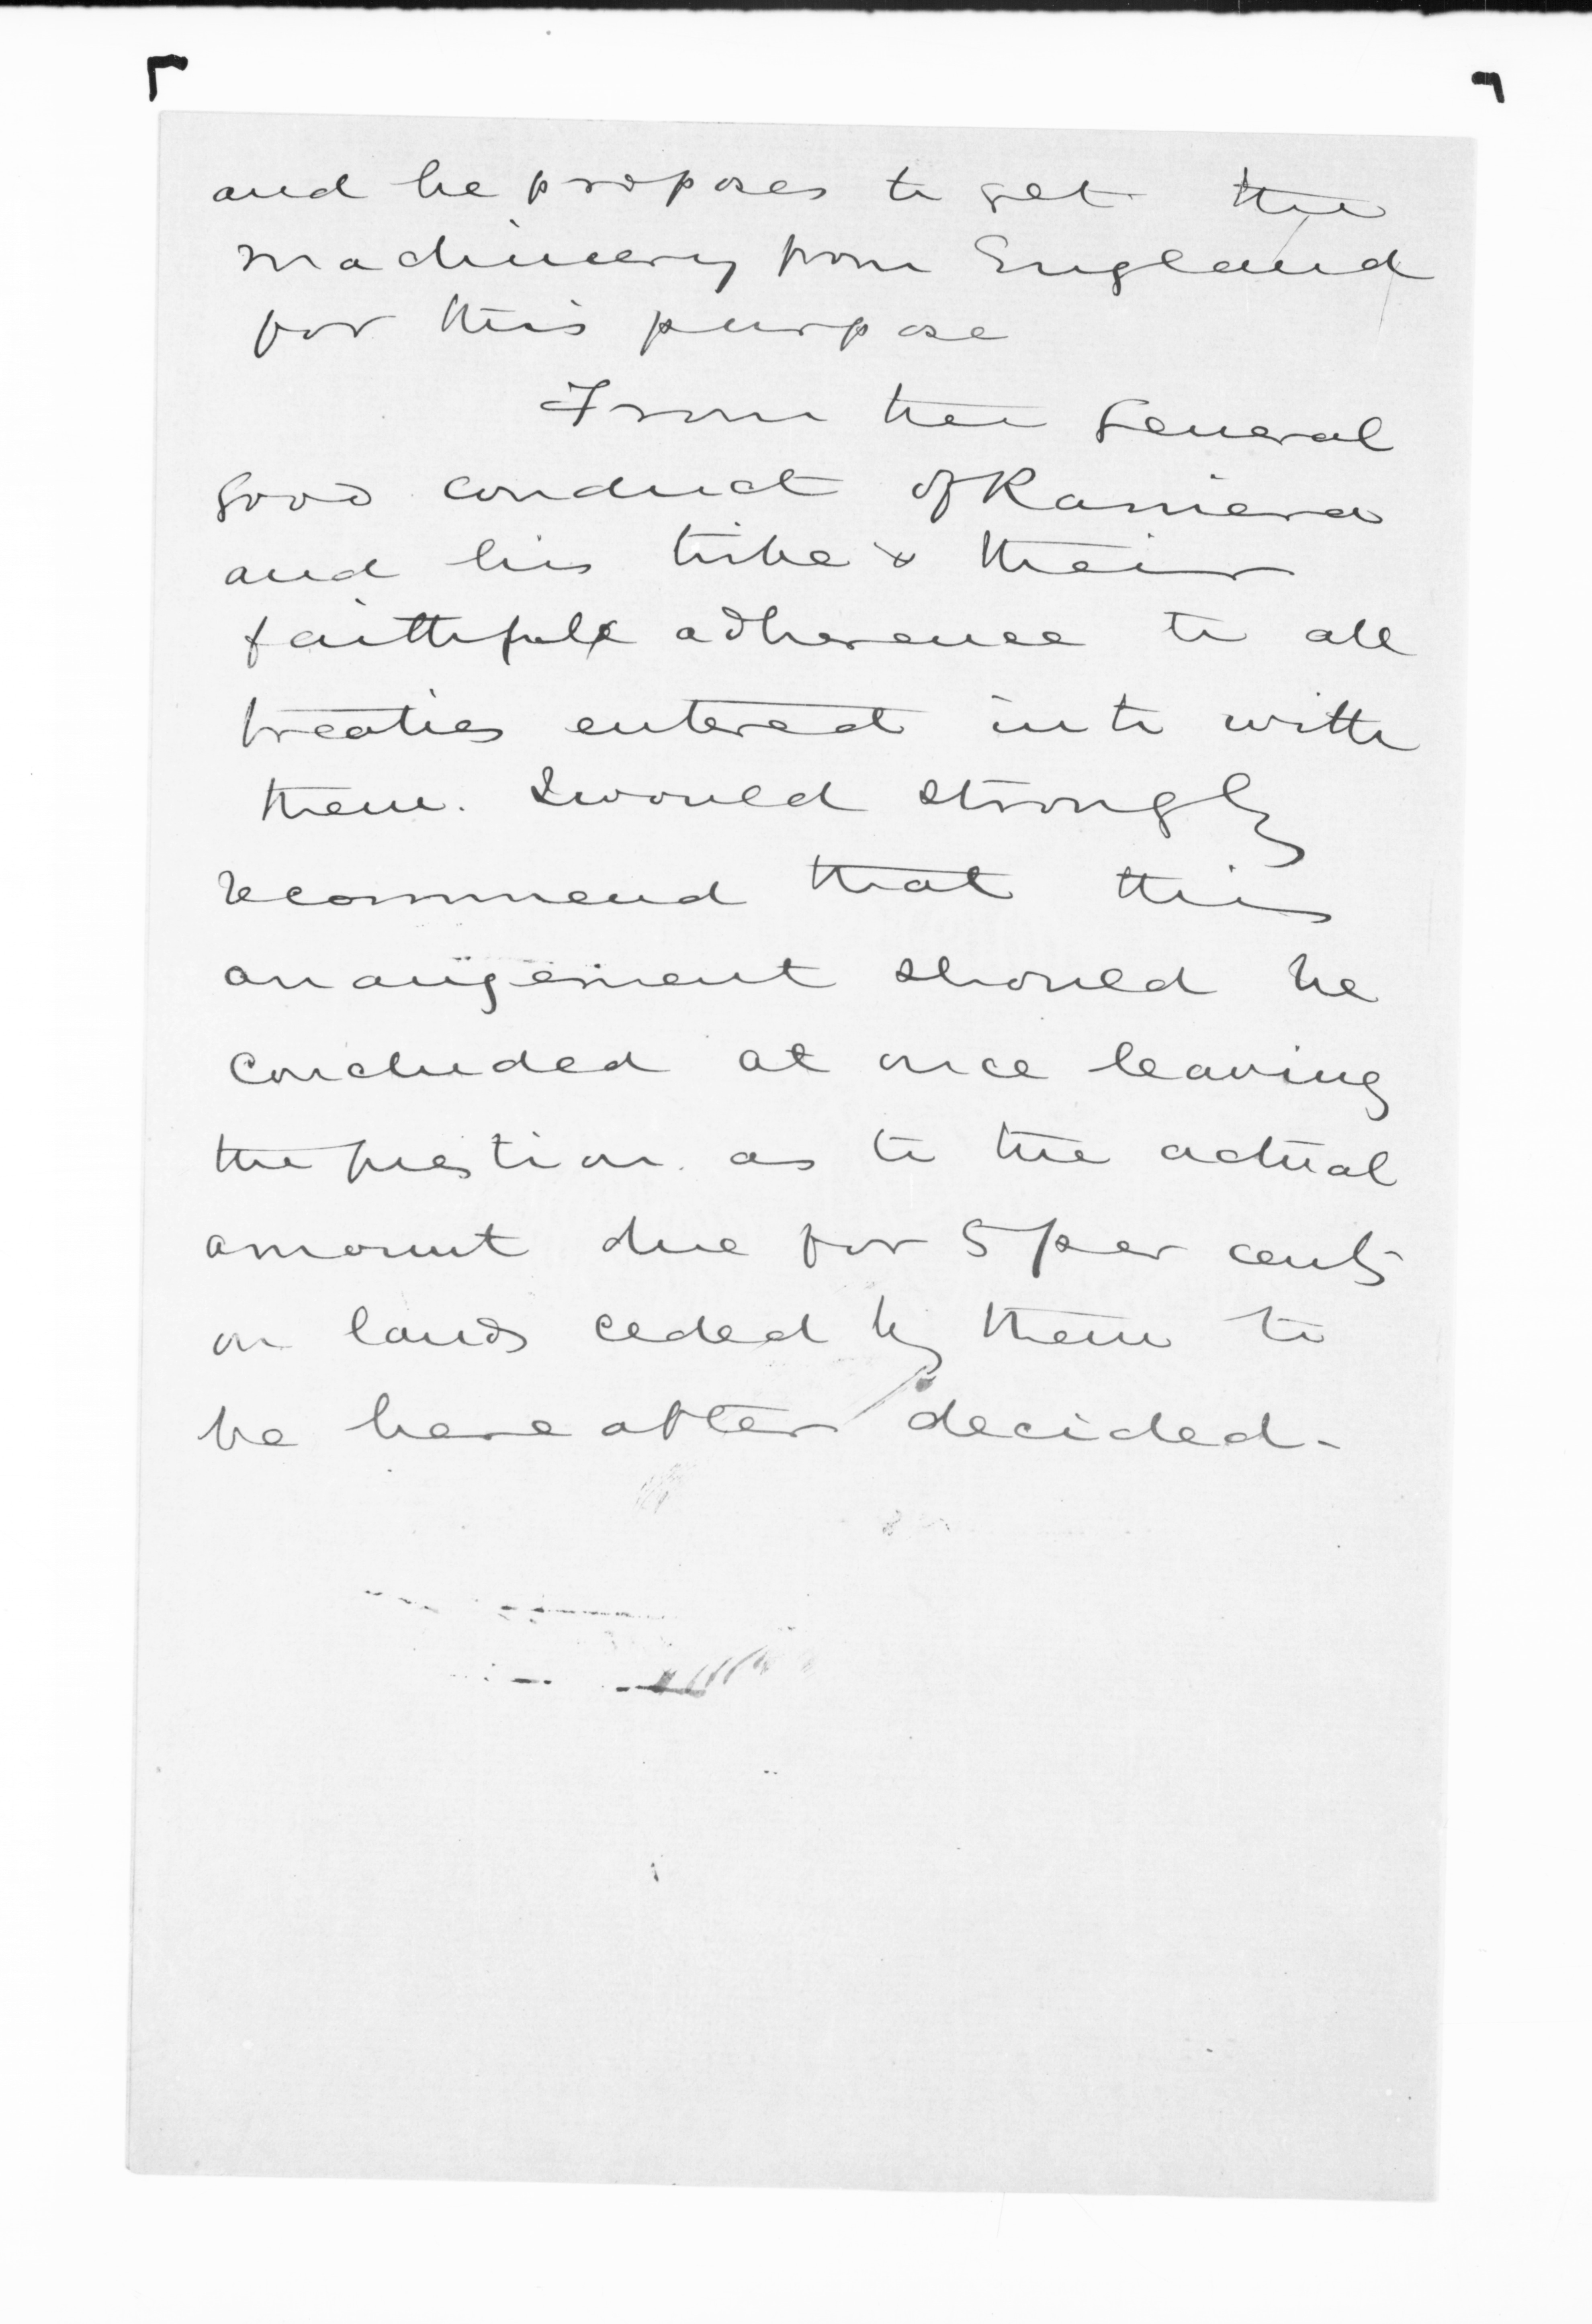 and he proposes to get the
machinery from England
for this purpose
From the General
good conduct of Raniera
and his tribe & their
faithful adherence to all
treaties entered into with
them. I would strongly
recommend that this
arrangement should be
concluded at once leaving
the question as to the actual
amount due for 5 per cents
on lands ceded by them to
be hereafter decided.